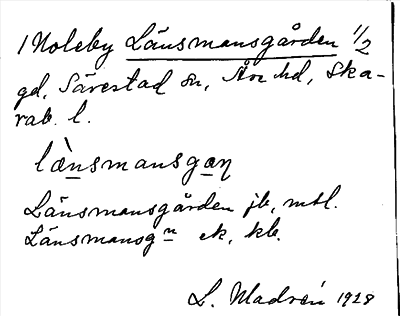 1 Noleby Länsmansgården 1/2
gd, Särestad sn, Åse hd, Ska-
rab. l.
læ̀nsmansgaɳ
Länsmansgården jb, mtl.
Länsmansgn ek, kb.
L. Madsén 1928